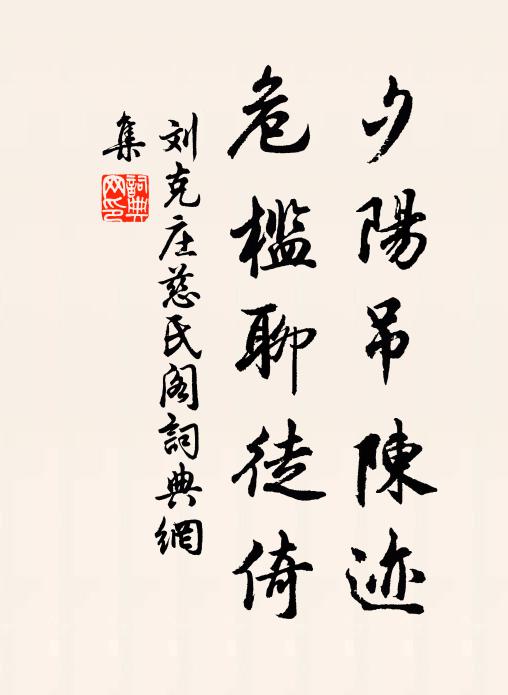 夕陽吊陳迹
危檻聊徒倚
刘克庄慈氏阁詞典網
集
詞典
网印